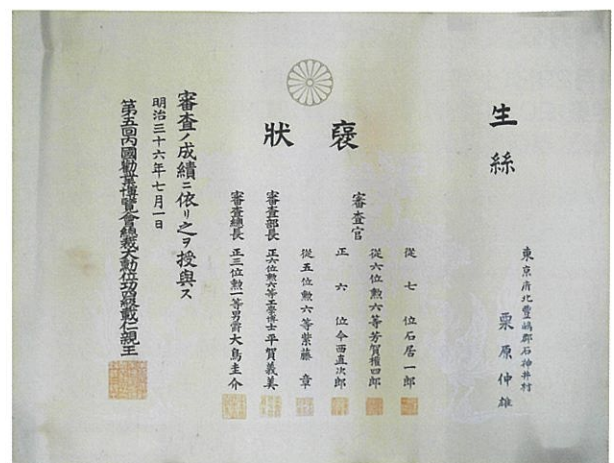 生絲
東京府北豐嶋郡石神井村
栗原仲雄
褒狀
審査官
從七位石居一郎
從六位勲六等芳賀權四郎
正六位今西直次郎
從五位勲六等紫藤章
審査部長 正六位勲六等工學博士平賀義美
審査總長 正三位勲一等男爵大鳥圭介
審査ノ成績ニ依リ之ヲ授與ス
明治三十六年七月一日
第五回內國勸業博覽會總裁大勲位功四級載仁親王